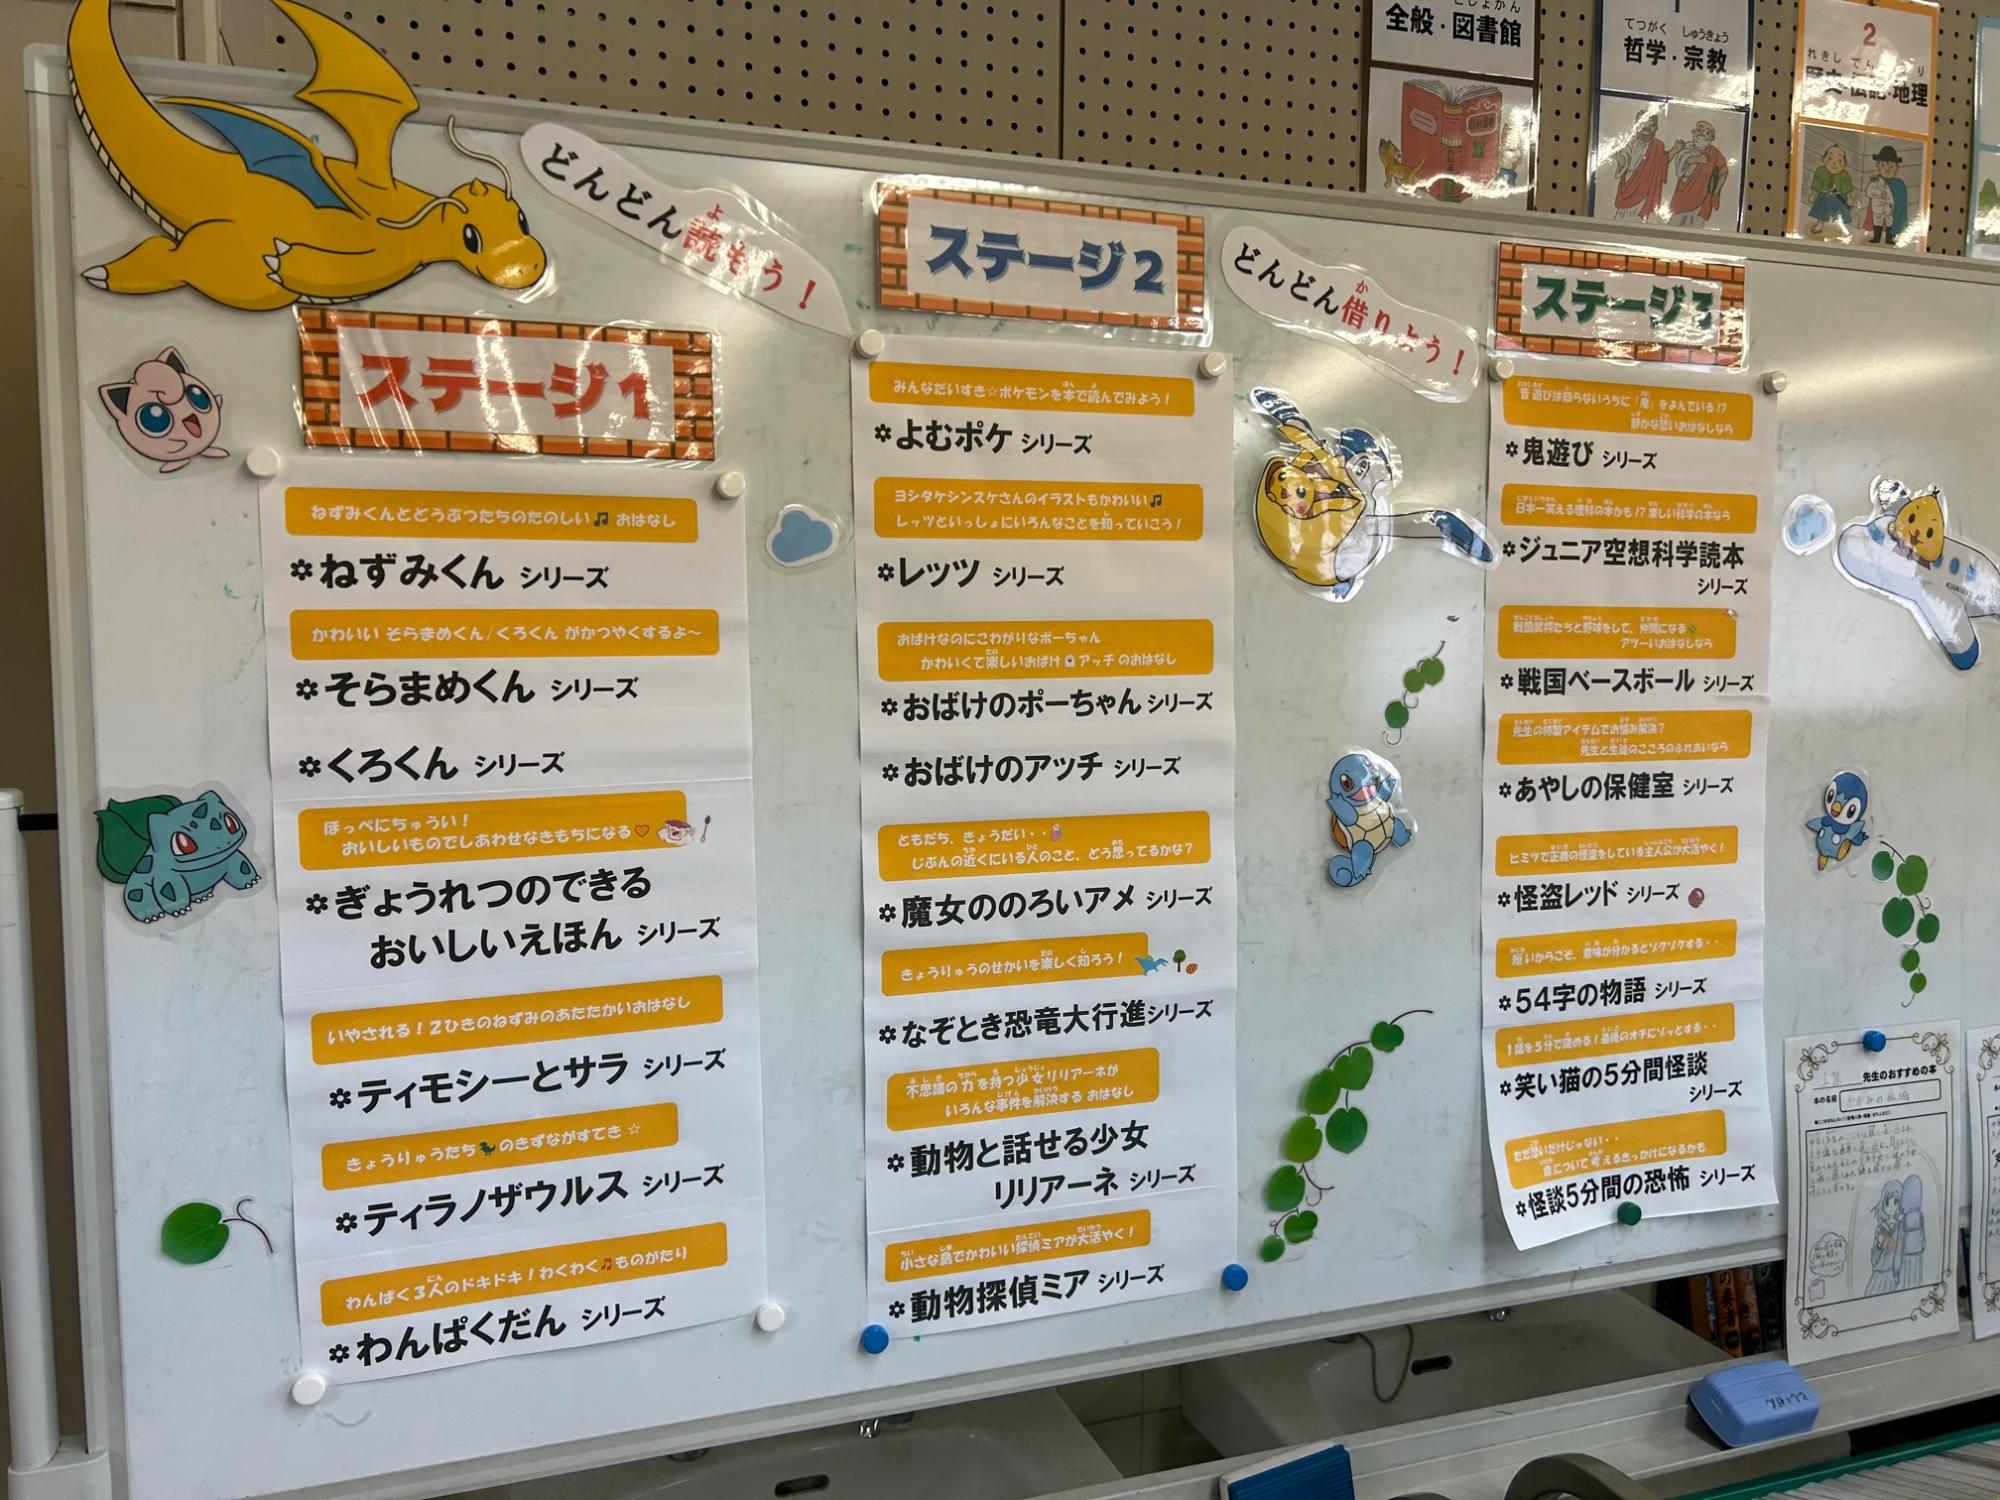 全般・図書館
てつがく しゅうきょう
哲学・宗教
2
どんどん読もう！
よ
どんどん借りよう！
か
ステージ1
ねずみくんとどうぶつたちのたのしい♫ おはなし
✽ねずみくん シリーズ
かわいい そらまめくん/くろくん がかつやくするよ～
✽そらまめくん シリーズ
✽くろくん シリーズ
ほっぺにちゅうい！
おいしいものでしあわせなきもちになる♡
✽ぎょうれつのできる
おいしいえほん シリーズ
いやされる！2ひきのねずみのあたたかいおはなし
✽ティモシーとサラ シリーズ
きょうりゅうたちのきずながすてき☆
✽ティラノザウルス シリーズ
わんぱく3人のドキドキ！わくわく♫ものがたり
にん
✽わんぱくだん シリーズ
ステージ2
みんなだいすき☆ポケモンを本で読んでみよう！
ほん よ
✽よむポケ シリーズ
ヨシタケシンスケさんのイラストもかわいい♫
レッツといっしょにいろんなことを知っていこう！
し
✽レッツ シリーズ
おばけなのにこわがりなポーちゃん
かわいくて楽しいおばけアッチ のおはなし
たの
✽おばけのポーちゃん シリーズ
✽おばけのアッチ シリーズ
ともだち、きょうだい・・
じぶんの近くにいる人のこと、どう思ってるかな？
ちか ひと おも
✽魔女ののろいアメ シリーズ
きょうりゅうのせかいを楽しく知ろう！
たの し
✽なぞとき恐竜大行進シリーズ
不思議の力を持つ少女リリアーネが
ふしぎ ちから も しょうじょ
いろんな事件を解決する おはなし
じけん かいけつ
✽動物と話せる少女
リリアーネ シリーズ
小さな島でかわいい探偵ミアが大活やく！
ちい しま たんてい だいかつ
✽動物探偵ミア シリーズ
ステージ3
昔遊びは知らないうちに「鬼」をよんでいる!?
静かな恐いおはなしなら
✽鬼遊び シリーズ
日本一笑える理科の本かも!? 楽しい科学の本なら
✽ジュニア空想科学読本
シリーズ
戦国武将たちと野球をして、仲間になる
アツーいおはなしなら
✽戦国ベースボール シリーズ
先生の特製アイテムでお悩み解決？
先生と生徒のこころのふれあいなら
✽あやしの保健室 シリーズ
ヒミツで正義の怪盗をしている主人公が大活やく！
✽怪盗レッド シリーズ
短いからこそ、意味が分かるとゾクゾクする・・
✽54字の物語 シリーズ
1話を5分で読める！最後のオチにゾッとする・・
✽笑い猫の5分間怪談
シリーズ
ただ恐いだけじゃない・・
命について考えるきっかけになるかも
✽怪談5分間の恐怖 シリーズ
先生のおすすめの本
本の名前
かがみの孤城